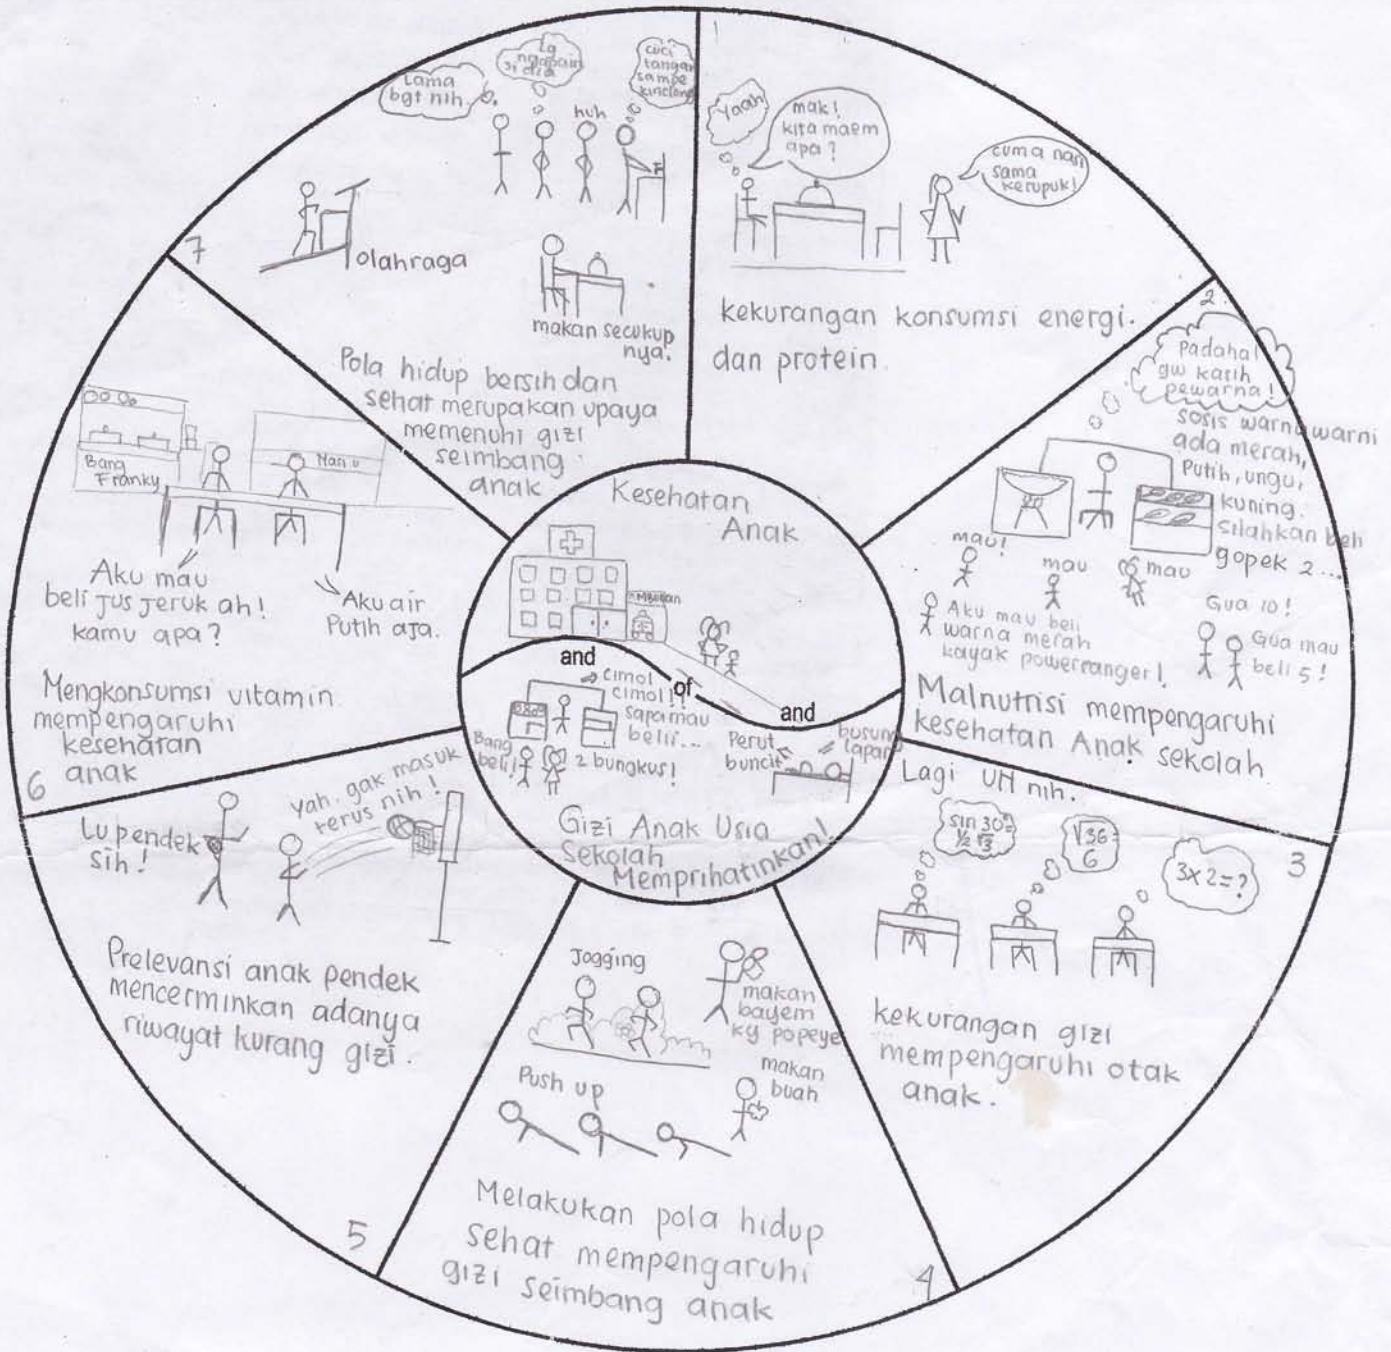 1
Yaah
mak!
kita maem
apa?
cuma nasi
sama
kerupuk!
kekurangan konsumsi energi.
dan protein.
2.
Padahal
gw kasih
pewarna!
sosis warna warni
ada merah,
Putih, ungu,
kuning.
Silahkan beli
gopek 2...
mau!
mau
mau
Aku mau beli
warna merah
kayak powerranger!
Gua 10!
Gua mau
beli 5!
Malnutrisi mempengaruhi
kesehatan Anak sekolah
3
Lagi UH nih.
sin 30=
1/2 √3
√36=
6
3x2=?
kekurangan gizi
mempengaruhi otak
anak.
4
Jogging
makan
bayem
ky popeye
Push up
makan
buah
Melakukan pola hidup
sehat mempengaruhi
gizi seimbang anak
5
Lu pendek
sih!
Yah. gak masuk
terus nih!
Prelevansi anak pendek
mencerminkan adanya
riwayat kurang gizi.
6
Bang
Franky
Aku mau
beli jus jeruk ah!
kamu apa?
Aku air
Putih aja.
Mengkonsumsi vitamin
mempengaruhi
kesehatan
anak
7
Lama
bgt nih
Lg
ngapain
si dia
huh
cuci
tangan
sampe
kinclong
olahraga
makan secukup
nya.
Pola hidup bersih dan
sehat merupakan upaya
memenuhi gizi
seimbang
anak
Kesehatan
Anak
and
of
and
cimol
cimol!!
sapa mau
belii...
Bang
beli!
2 bungkus!
Perut
buncit
busung
lapar
Gizi Anak Usia
Sekolah
Memprihatinkan!